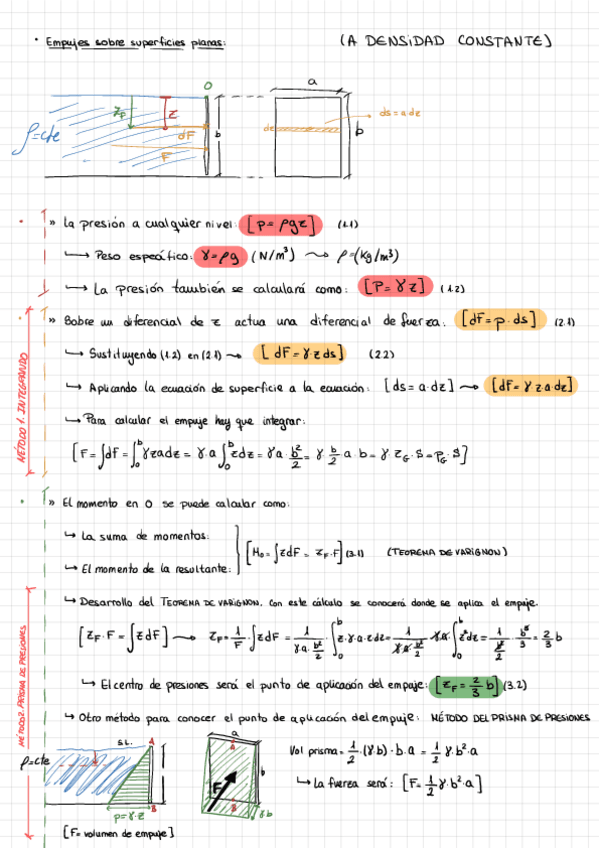 · Empujes sobre superficies planas: (A DENSIDAD CONSTANTE)
O
a
Z_F
z
ds = a·dz
ρ=cte
dF
b
dz
b
F
» La presión a cualquier nivel: [p = ρgz] (1.1)
↳ Peso específico: γ=ρg (N/m³) ⟿ ρ=(kg/m³)
↳ La presión también se calculará como: [P = γz] (1.2)
» Sobre un diferencial de z actua una diferencial de fuerza: [dF = p·ds] (2.1)
↳ Sustituyendo (1.2) en (2.1) ⟿ [dF = γ·z ds] (2.2)
↳ Aplicando la ecuación de superficie a la ecuación: [ds = a·dz] ⟶ [dF = γ z a dz]
↳ Para calcular el empuje hay que integrar:
[F = ∫dF = ∫₀ᵇ γzadz = γ·a ∫₀ᵇ zdz = γa·b²/2 = γ·b/2·a·b = γ Z_G·S = P_G·S]
MÉTODO 1. INTEGRANDO
» El momento en O se puede calcular como:
↳ La suma de momentos:
[M₀ = ∫zdF = Z_F·F] (3.1) (TEOREMA DE VARIGNON)
↳ El momento de la resultante:
↳ Desarrollo del TEOREMA DE VARIGNON. Con este cálculo se conocerá donde se aplica el empuje.
[Z_F·F = ∫zdF] ⟶ Z_F = 1/F·∫zdF = 1/(γa·b²/2) ∫₀ᵇ z·γ·a·zdz = 1/(γ·a·b²/2) γ·a·∫₀ᵇ z²dz = 1/(b²/2)·b³/3 = 2/3 b
↳ El centro de presiones será el punto de aplicación del empuje: [Z_F = 2/3 b] (3.2)
↳ Otro método para conocer el punto de aplicación del empuje: MÉTODO DEL PRISMA DE PRESIONES
MÉTODO 2. PRISMA DE PRESIONES
S.L.
A
a
A
ρ=cte
Vol prisma = 1/2·(γ·b)·b·a = 1/2 γ·b²·a
b
F
↳ La fuerza será: [F = 1/2 γ·b²·a]
B
B
p=γ·z
γ·b
[F = volumen de empuje]